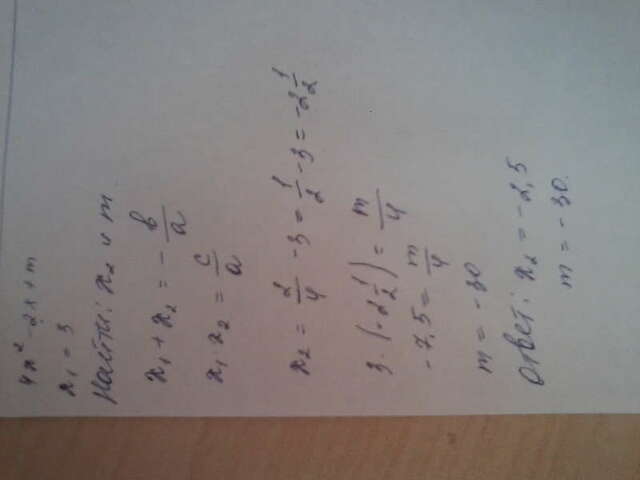 4x² - 2x + m
x₁ = 3
Найти: x₂ и m.
x₁ + x₂ = - b/a
x₁ · x₂ = c/a
x₂ = 2/4 - 3 = 1/2 - 3 = -2 1/2
3 · (-2 1/2) = m/4
-7,5 = m/4
m = -30
Ответ: x₂ = -2,5
m = -30.